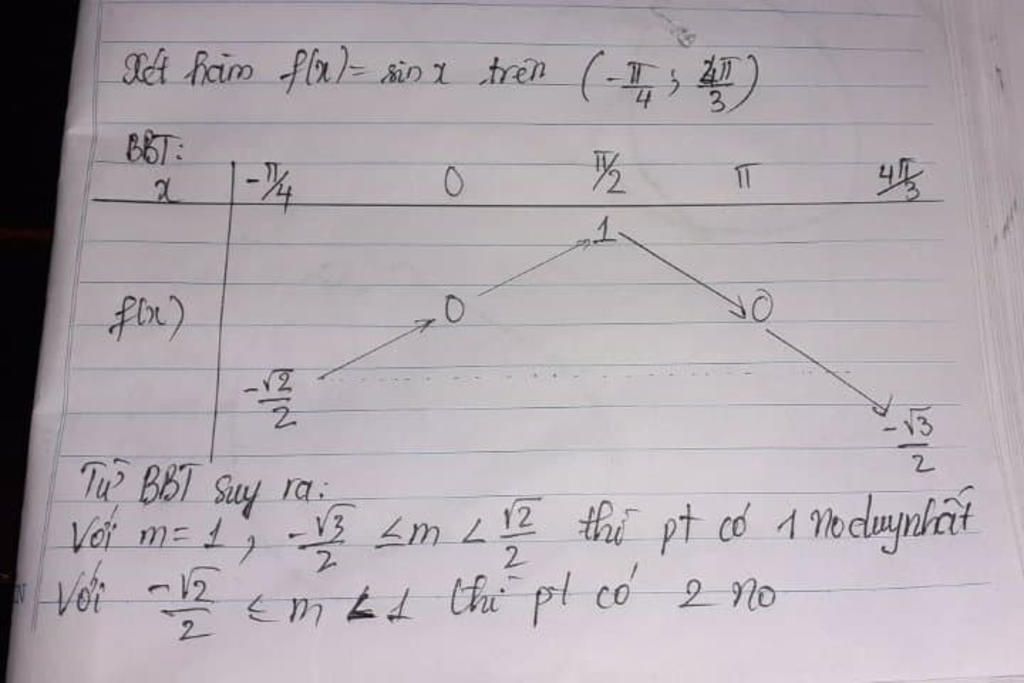 Xét hàm f(x) = sin x trên (-π/4 ; 4π/3)
BBT:
x -π/4 0 π/2 π 4π/3
1
f(x) 0 0
-√2/2 -√3/2
Từ BBT suy ra:
Với m = 1, -√3/2 ≤ m < √2/2 thì pt có 1 no duy nhất
Với -√2/2 ≤ m < 1 thì pt có 2 no